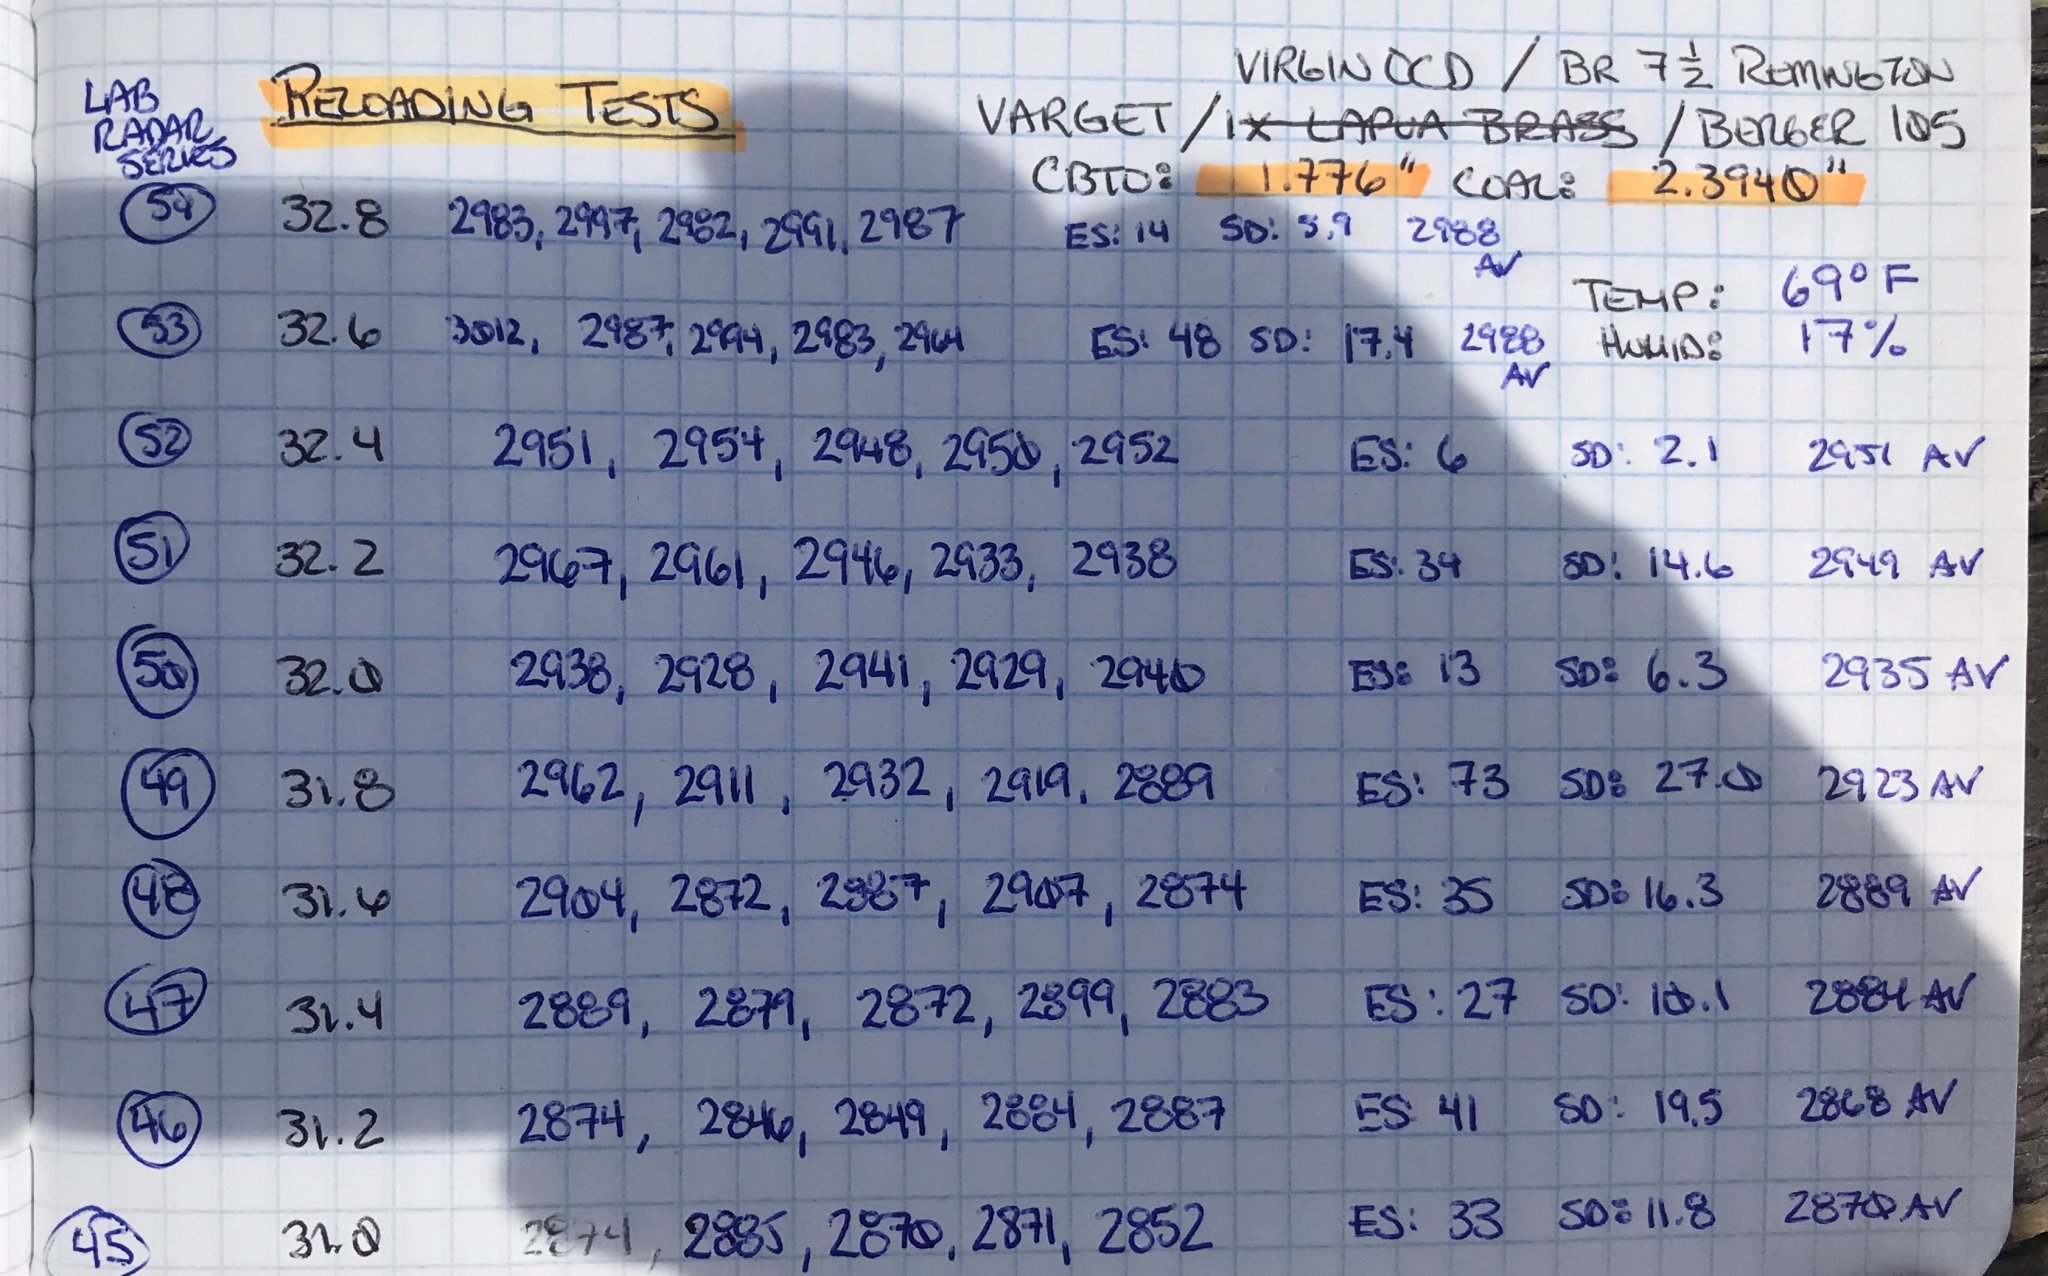 LAB
RADAR
SERIES
RELOADING TESTS
VIRGIN OCD / BR 7 1/2 REMINGTON
VARGET / 1X LAPUA BRASS / BERGER 105
CBTO: 1.776" COAL: 2.3940"
54 32.8 2983, 2997, 2982, 2991, 2987 ES: 14 SD: 5.9 2988 AV
TEMP: 69° F
53 32.6 3012, 2987, 2994, 2983, 2964 ES: 48 SD: 17.4 2988 AV
HUMID: 17%
52 32.4 2951, 2954, 2948, 2950, 2952 ES: 6 SD: 2.1 2951 AV
51 32.2 2967, 2961, 2946, 2933, 2938 ES: 34 SD: 14.6 2949 AV
50 32.0 2938, 2928, 2941, 2929, 2940 ES: 13 SD: 6.3 2935 AV
49 31.8 2962, 2911, 2932, 2919, 2889 ES: 73 SD: 27.0 2923 AV
48 31.6 2904, 2872, 2887, 2907, 2874 ES: 35 SD: 16.3 2889 AV
47 31.4 2889, 2879, 2872, 2899, 2883 ES: 27 SD: 10.1 2884 AV
46 31.2 2874, 2846, 2849, 2884, 2887 ES: 41 SD: 19.5 2868 AV
45 31.0 2874, 2885, 2870, 2871, 2852 ES: 33 SD: 11.8 2870 AV